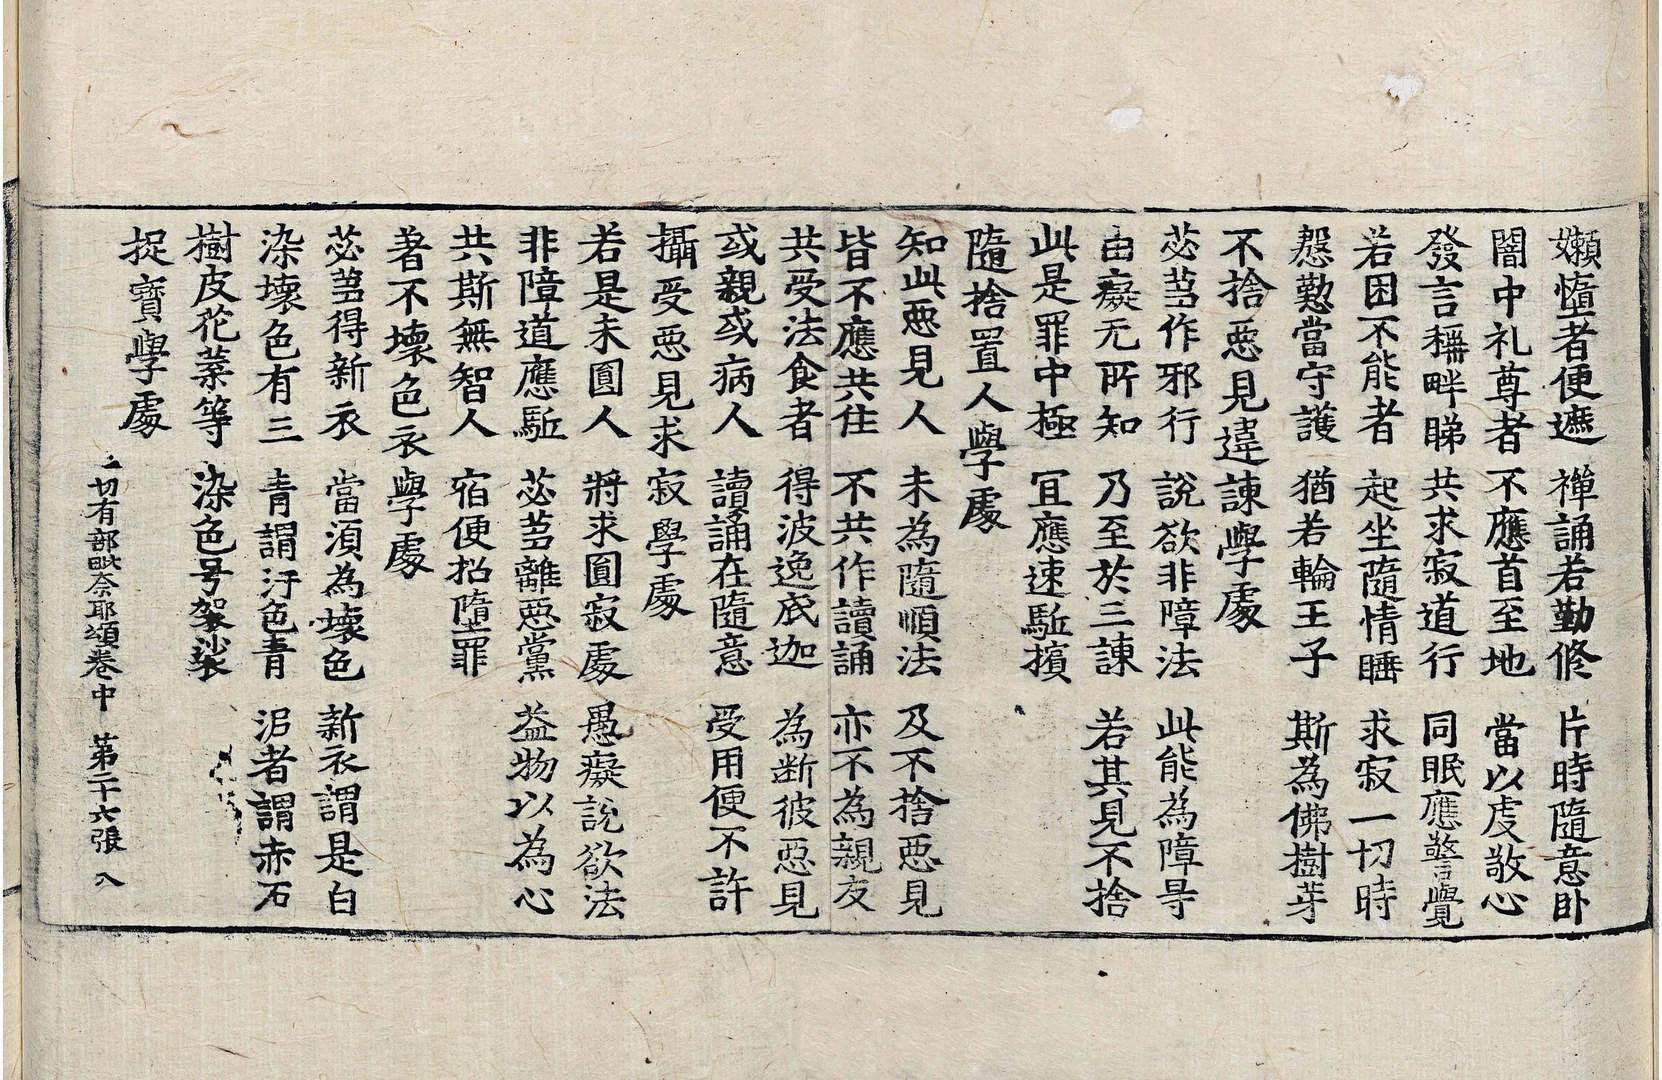 嬾墮者便遮 禪誦若勤修 片時隨意卧
闇中礼尊者 不應首至地 當以虔敬心
發言稱畔睇 共求寂道行 同眠應警覺
若困不能者 起坐隨情睡 求寂一切時
慇懃當守護 猶若輪王子 斯為佛樹芽
不捨惡見違諫學處
苾芻作邪行 說欲非障法 此能為障㝵
由癡无所知 乃至於三諫 若其見不捨
此是罪中極 冝應速駈擯
隨捨置人學處
知此惡見人 未為隨順法 及不捨惡見
皆不應共住 不共作讀誦 亦不為親友
共受法食者 得波逸底迦 為斷彼惡見
或親或病人 讀誦在隨意 受用便不許
攝受惡見求寂學處
若是未圓人 將求圓寂處 愚癡說欲法
非障道應駈 苾芻離惡黨 益物以為心
共斯無智人 宿便招墮罪
著不壞色衣學處
苾芻得新衣 當須為壞色 新衣謂是白
染壞色有三 青謂汙色青 泥者謂赤石
樹皮花菓等 染色号袈裟
捉寶學處
一切有部毗奈耶頌卷中 第二十六張 入